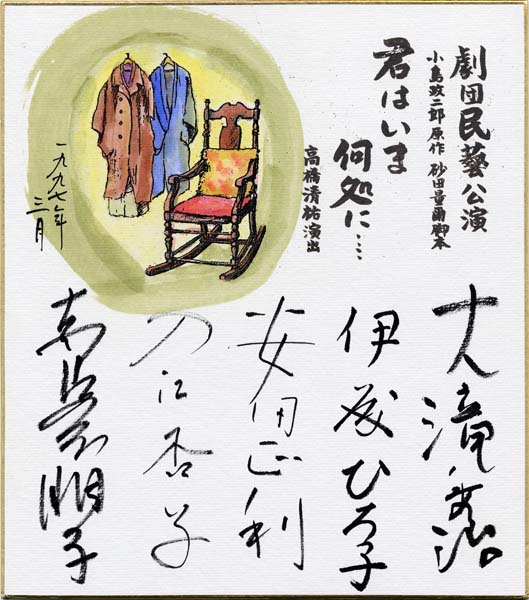 劇団民藝公演
小島政二郎 原作 砂田量爾 脚本
君はいま
何処に‥‥
高橋清祐 演出
一九九七年
三月
大滝秀治
伊藤ひろ子
安田正利
入江杏子
奈良岡朋子